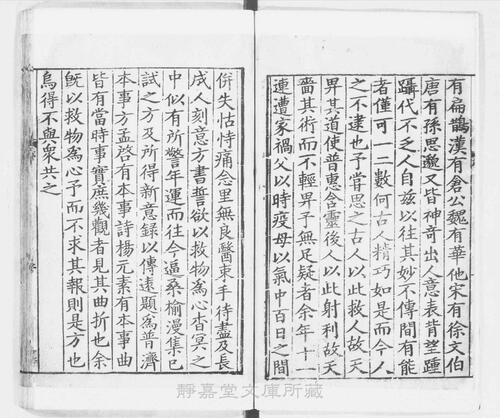 有扁鵲漢有倉公魏有華他宋有徐文伯
唐有孫思邈又皆神奇出人意表背望踵
躡代不乏人自兹以往其妙不傳間有能
者僅可一二數何古人精巧如是而今人
之不逮也予嘗思之古人以此救人故天
畀其道使普惠含靈後人以此射利故天
嗇其術而不輕畀予無足疑者余年十一
連遭家禍父以時疫母以氣中百日之間
併失怙恃痛念里無良醫束手待盡及長
成人刻意方書誓欲以救物為心杳冥之
中似有所警年運而往今逼桑榆漫集已
試之方及所得新意錄以傳遠顯為普濟
本事方孟啓有本事詩楊元素有本事曲
皆有當時事實庶幾觀者見其曲折也余
旣以救物為心予而不求其報則是方也
烏得不與衆共之
靜嘉堂文庫所藏